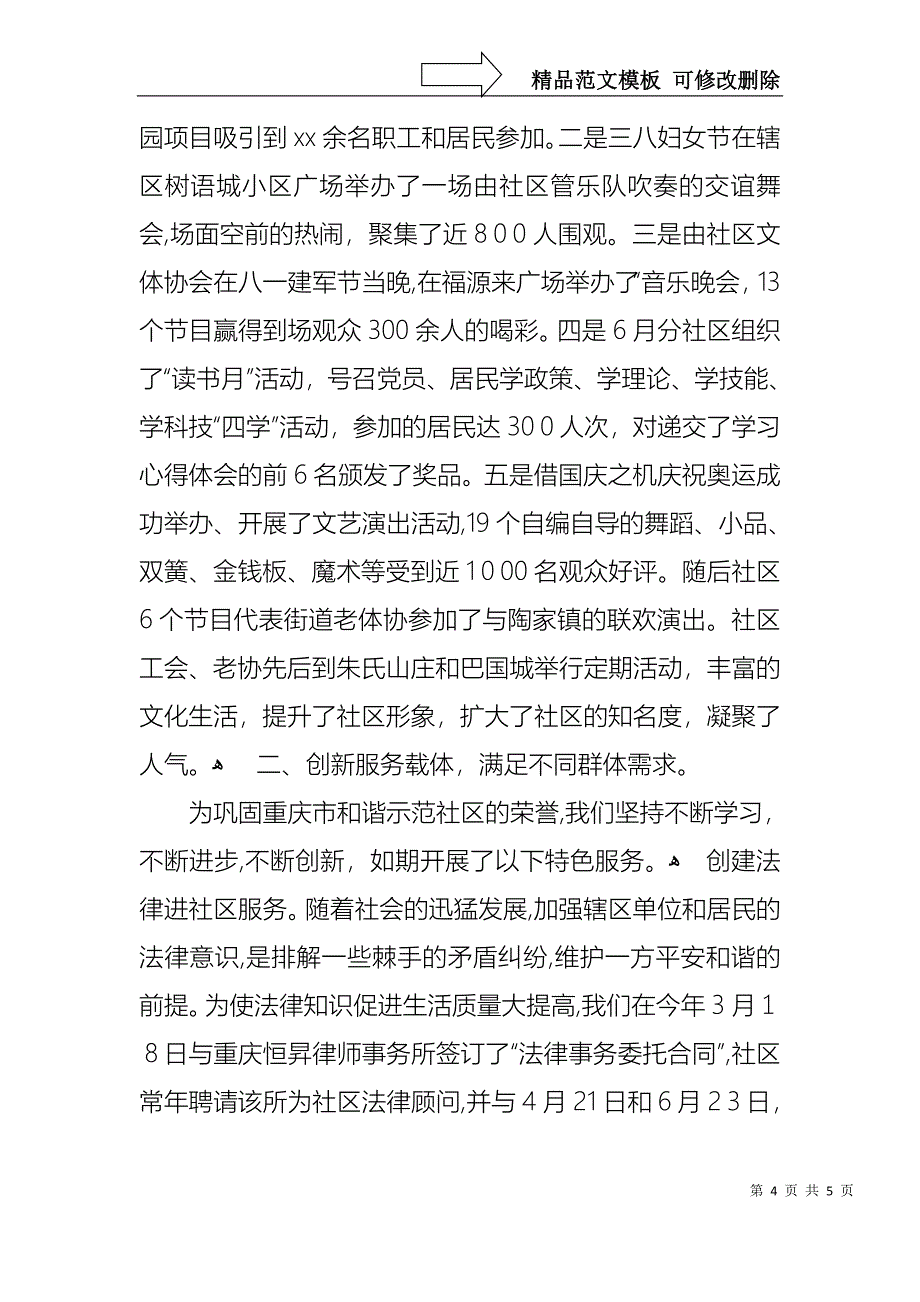 精品范文模板 可修改删除
园项目吸引到 xx 余名职工和居民参加。二是三八妇女节在辖
区树语城小区广场举办了一场由社区管乐队吹奏的交谊舞
会,场面空前的热闹，聚集了近８００人围观。三是由社区文
体协会在八一建军节当晚,在福源来广场举办了“音乐晚会，13
个节目赢得到场观众 300 余人的喝彩。四是６月分社区组织
了“读书月”活动，号召党员、居民学政策、学理论、学技能、
学科技“四学”活动，参加的居民达 30０人次，对递交了学习
心得体会的前 6 名颁发了奖品。五是借国庆之机庆祝奥运成
功举办、开展了文艺演出活动,19 个自编自导的舞蹈、小品、
双簧、金钱板、魔术等受到近１0００名观众好评。随后社区
6 个节目代表街道老体协参加了与陶家镇的联欢演出。社区
工会、老协先后到朱氏山庄和巴国城举行定期活动，丰富的
文化生活，提升了社区形象，扩大了社区的知名度，凝聚了
人气。ﻫ 二、创新服务载体，满足不同群体需求。
为巩固重庆市和谐示范社区的荣誉,我们坚持不断学习，
不断进步,不断创新，如期开展了以下特色服务。ﻫ 创建法
律进社区服务。随着社会的迅猛发展,加强辖区单位和居民的
法律意识,是排解一些棘手的矛盾纠纷,维护一方平安和谐的
前提。为使法律知识促进生活质量大提高,我们在今年３月１
８日与重庆恒昇律师事务所签订了“法律事务委托合同”,社区
常年聘请该所为社区法律顾问,并与４月 21 日和６月２３日，
第 4 页 共 5 页